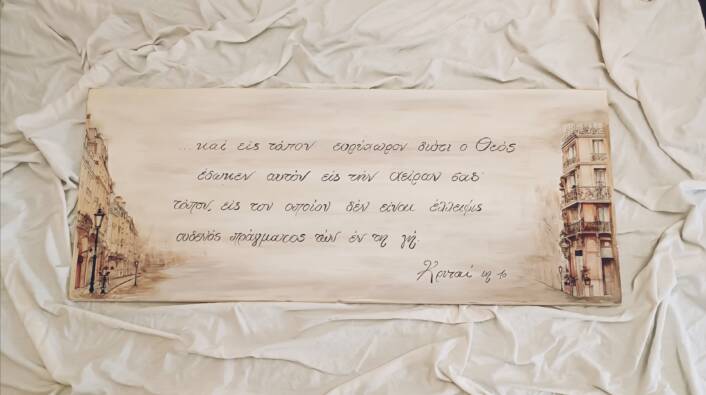 ...καὶ εἰς τόπον εὐρύχωρον διότι ὁ Θεὸς
ἔδωκεν αυτὸν εἰς τὴν χεῖραν σας·
τόπον, εἰς τον οποίον δὲν εἶναι ἔλλειψις
ουδενὸς πράγματος τῶν ἐν τῃ γῇ.
Κριταί ιη 10